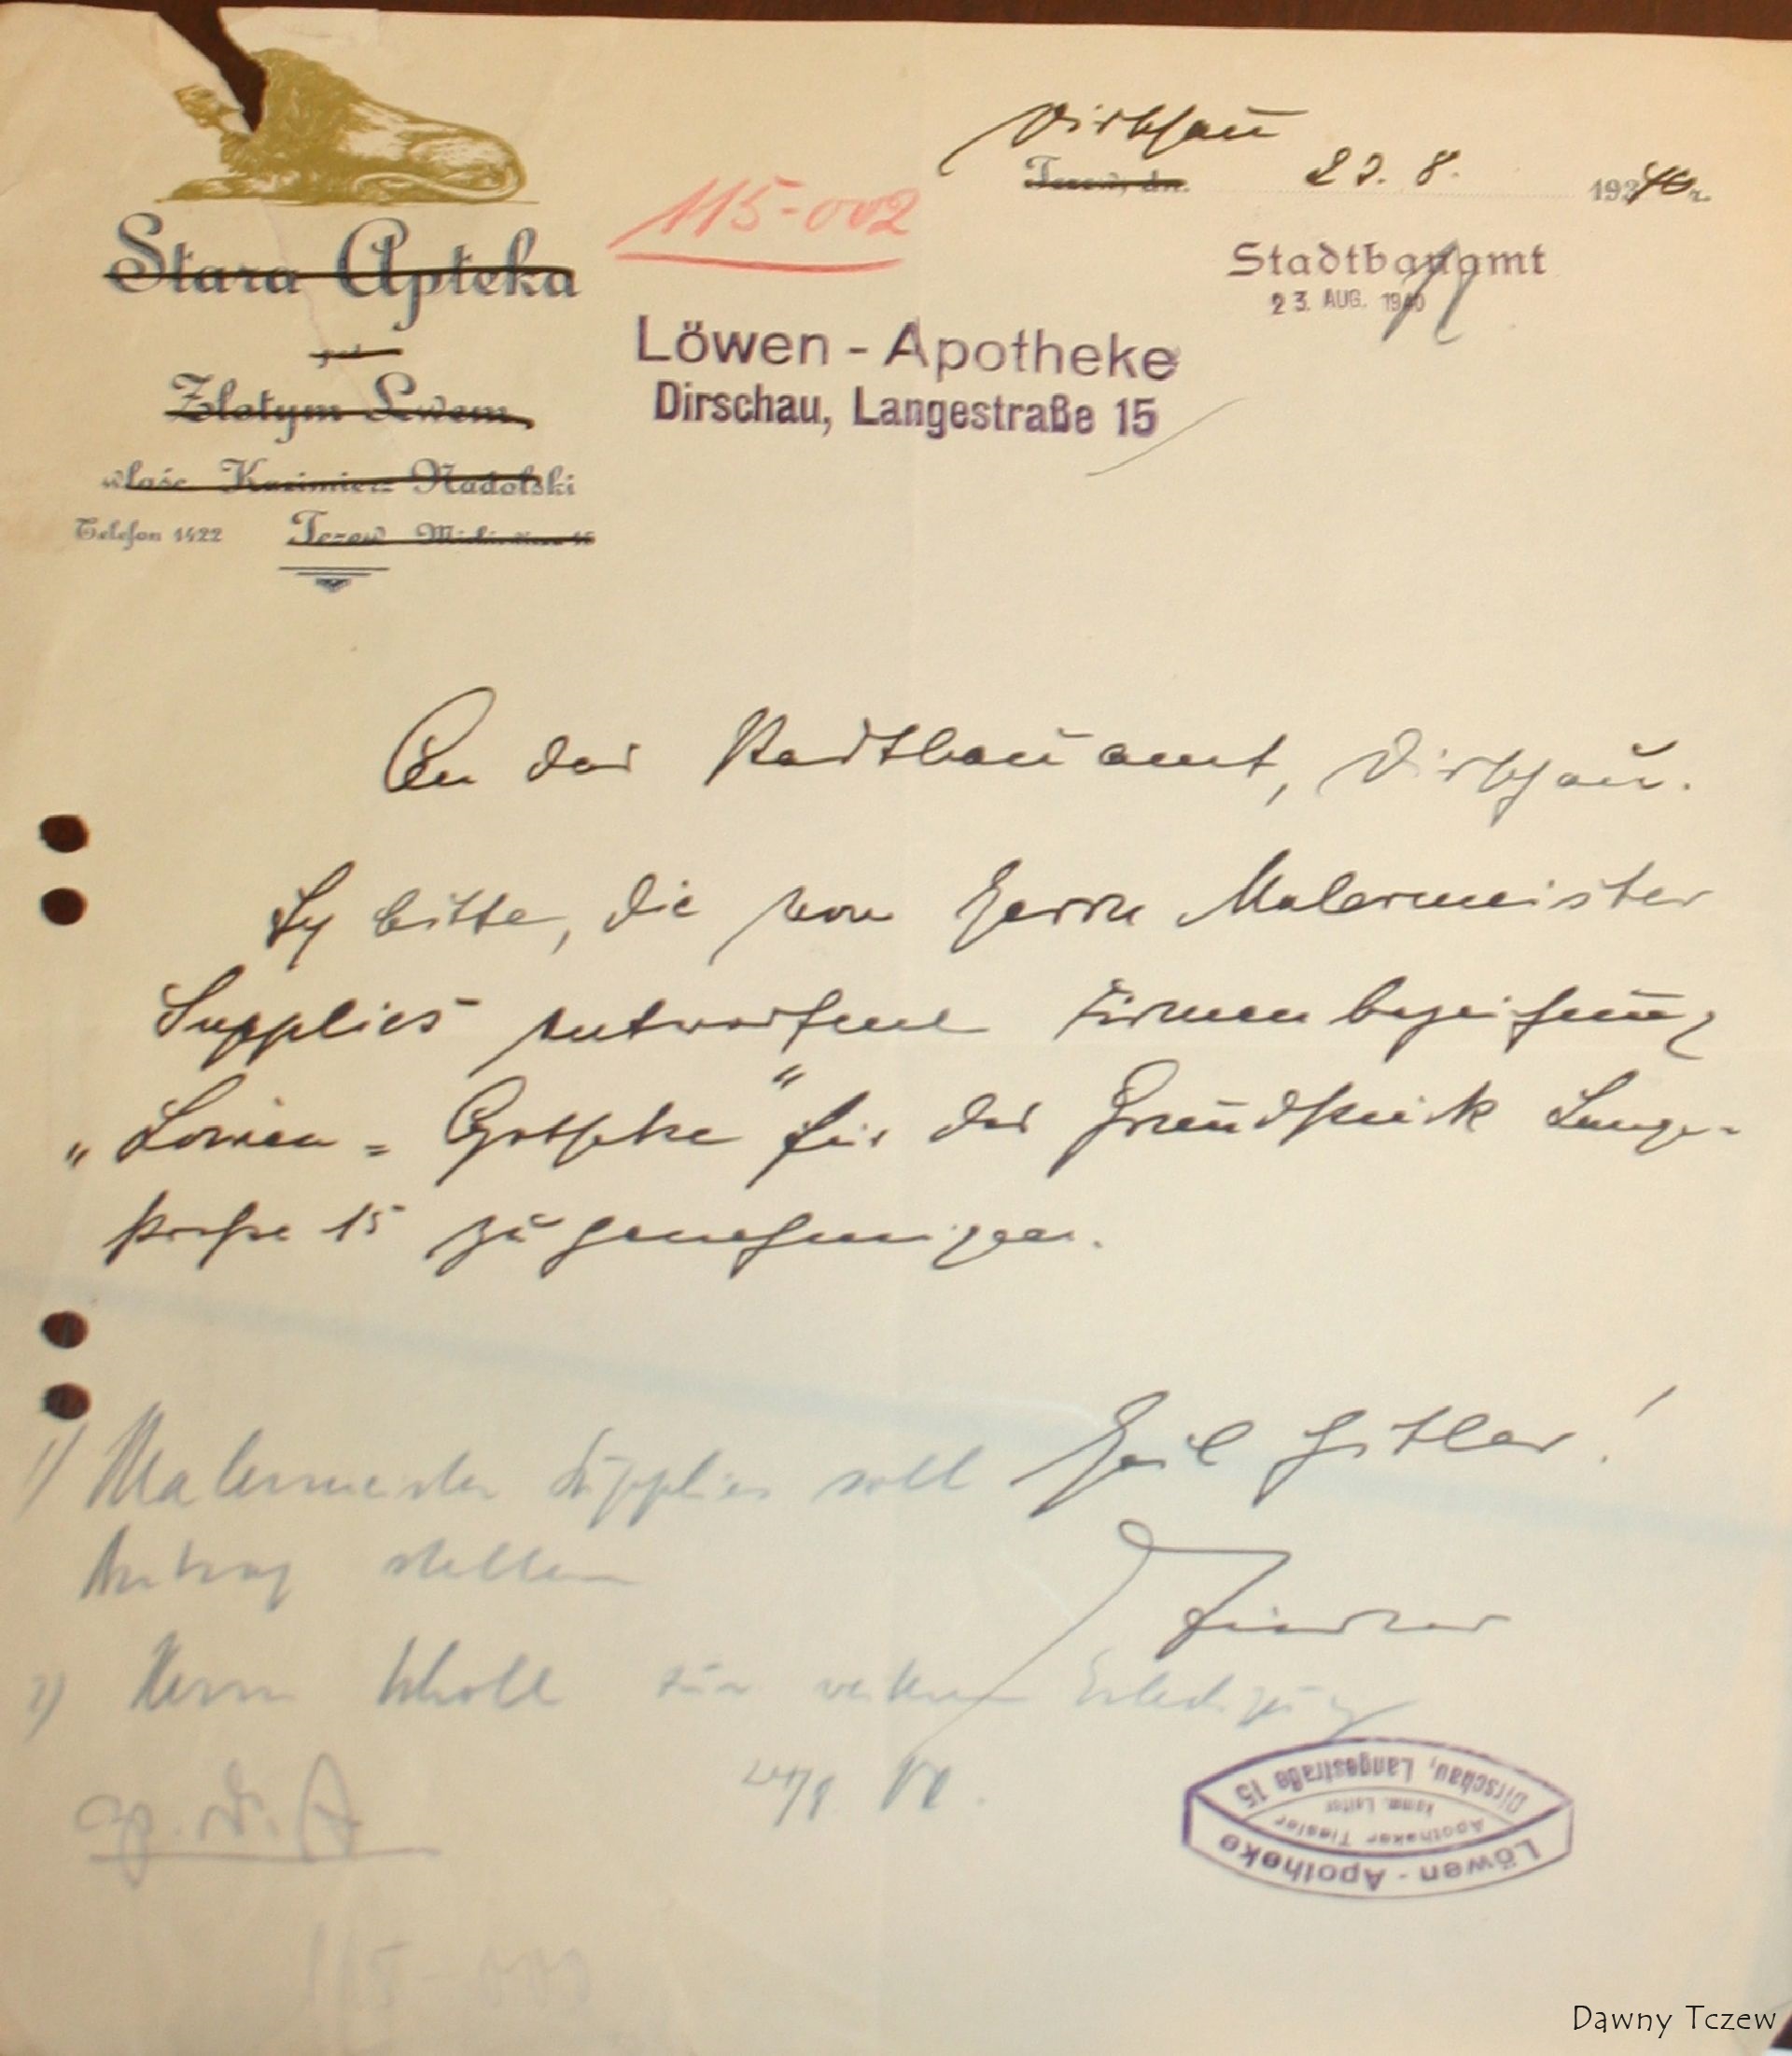 Dirschau
Tczew, dn. 23. 8. 1940 r.
115-002
Stadtbauamt
23. AUG. 1940
Stara Apteka
pod
Złotym Lwem
właśc. Kazimierz Nadolski
Telefon 1422 Tczew 15
Löwen - Apotheke
Dirschau, Langestraße 15
An das Stadtbauamt, Dirschau.
Ich bitte, die von Herrn Malermeister
Supplies entworfene Firmenbezeichnung
„Löwen = Apotheke“ für das Grundstück Lange-
straße 15 zu genehmigen.
Heil Hitler!
1) Malermeister Supplies soll
Antrag stellen
2) Herrn zur weiteren Erledigung
Löwen - Apotheke
Apotheker Tiesler
komm. Leiter
Dirschau, Langestraße 15
Dawny Tczew